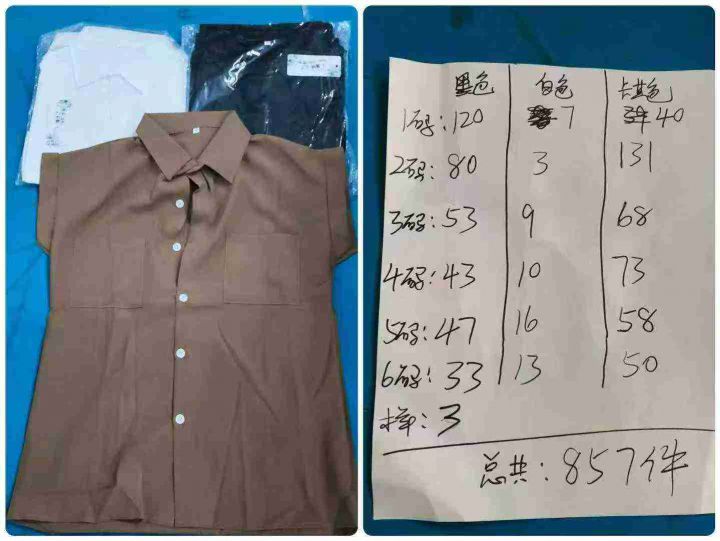 黑色 白色 卡其色
1码: 120 7 40
2码: 80 3 131
3码: 53 9 68
4码: 43 10 73
5码: 47 16 58
6码: 33 13 50
样: 3
总共: 857件